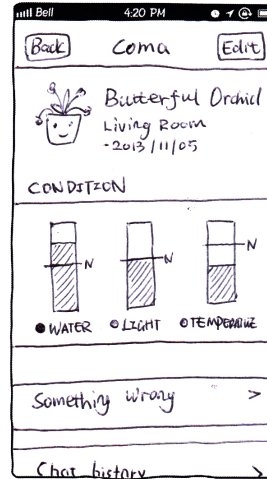 Bell 4:20 PM
Back Coma Edit
Butterful Orchid
Living Room
-2013/11/05
CONDITION
N N N
WATER LIGHT TEMPERATURE
Something wrong >
Chat history >